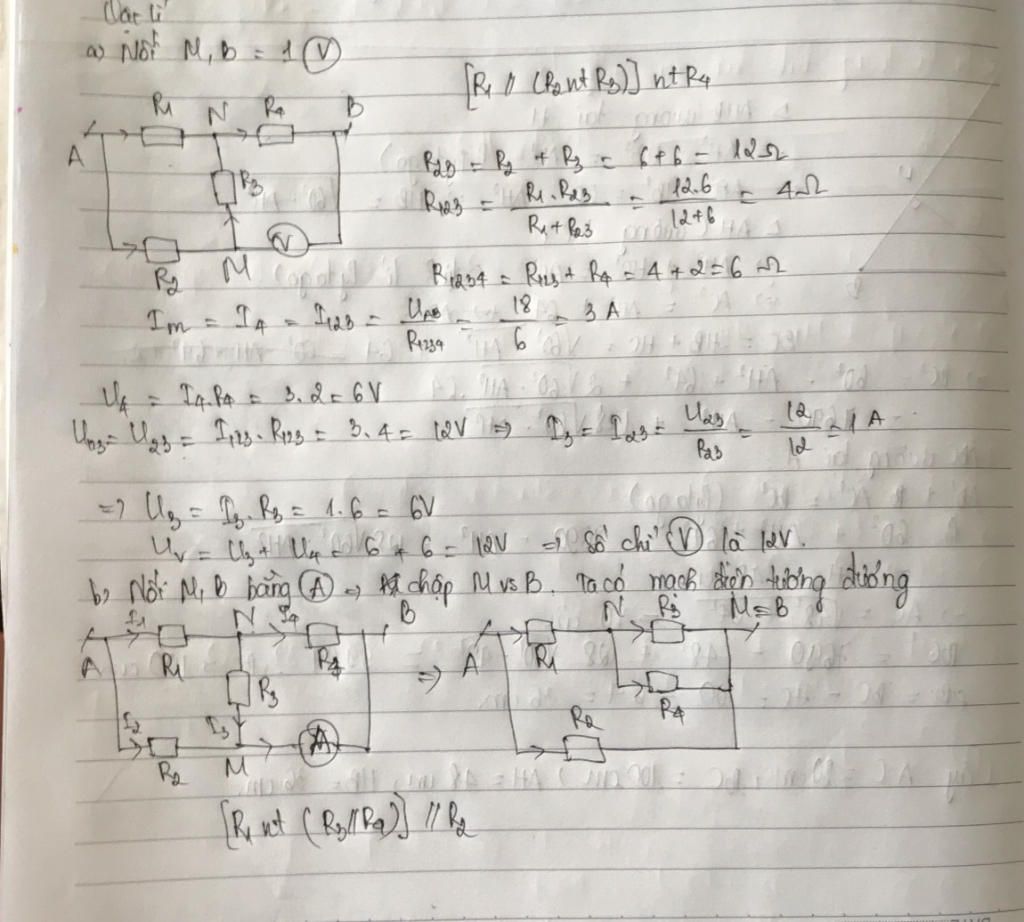 Vật lí
a) Nối M, B = 1 (V)
[R1 // (R2 nt R3)] nt R4
R1 N R4 B
A R3
V
R2 M
R23 = R2 + R3 = 6+6 = 12Ω
R123 = R1.R23 / R1+R23 = 12.6 / 12+6 = 4Ω
R1234 = R123 + R4 = 4+2=6 Ω
Im = I4 = I123 = UAB / R1234 = 18 / 6 = 3 A
U4 = I4.R4 = 3.2=6V
U123= U23 = I123.R123 = 3.4= 12V => I3 = I23 = U23 / R23 = 12 / 12 = 1 A
=> U3 = I3.R3 = 1.6 = 6V
UV = U3+ U4 = 6+6 = 12V => Số chỉ (V) là 12V.
b) Nối M, B bằng (A) => chập M vs B. Ta có mạch điện tương đương
I1 N I4 B
A R1 R4
R3
I2 I3 A
R2 M
=>
N R3 M≡B
A R1
R4
R2
[R1 nt (R3//R4)] // R2